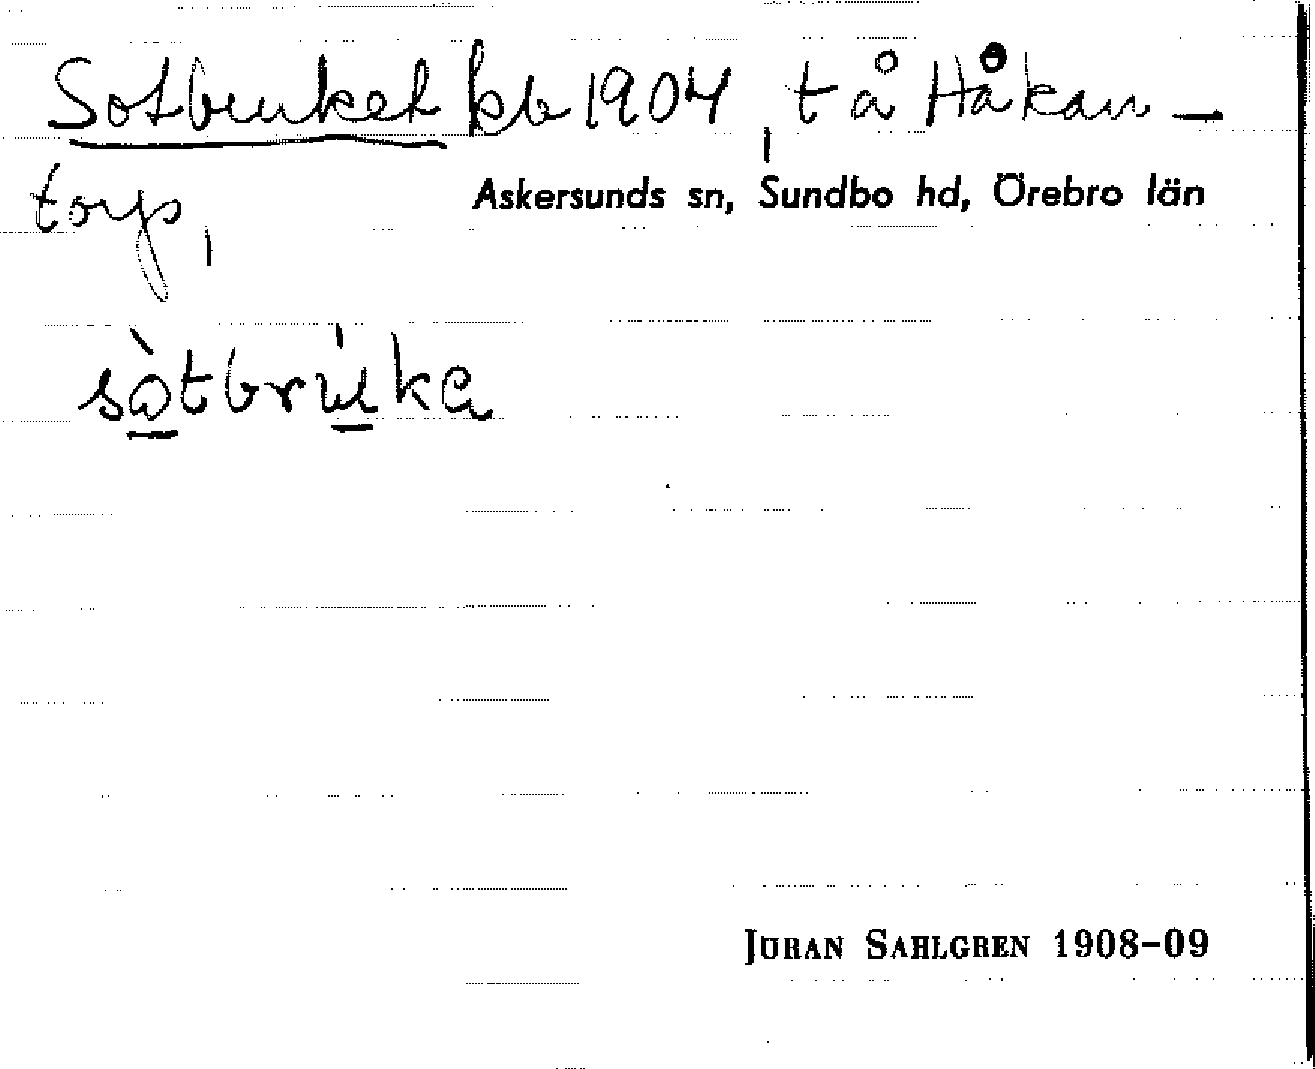 Sotbruket kb 1904, t å Håkan-
torp,
Askersunds sn, Sundbo hd, Örebro län
sòtbrúka
JÖRAN SAHLGREN 1908-09